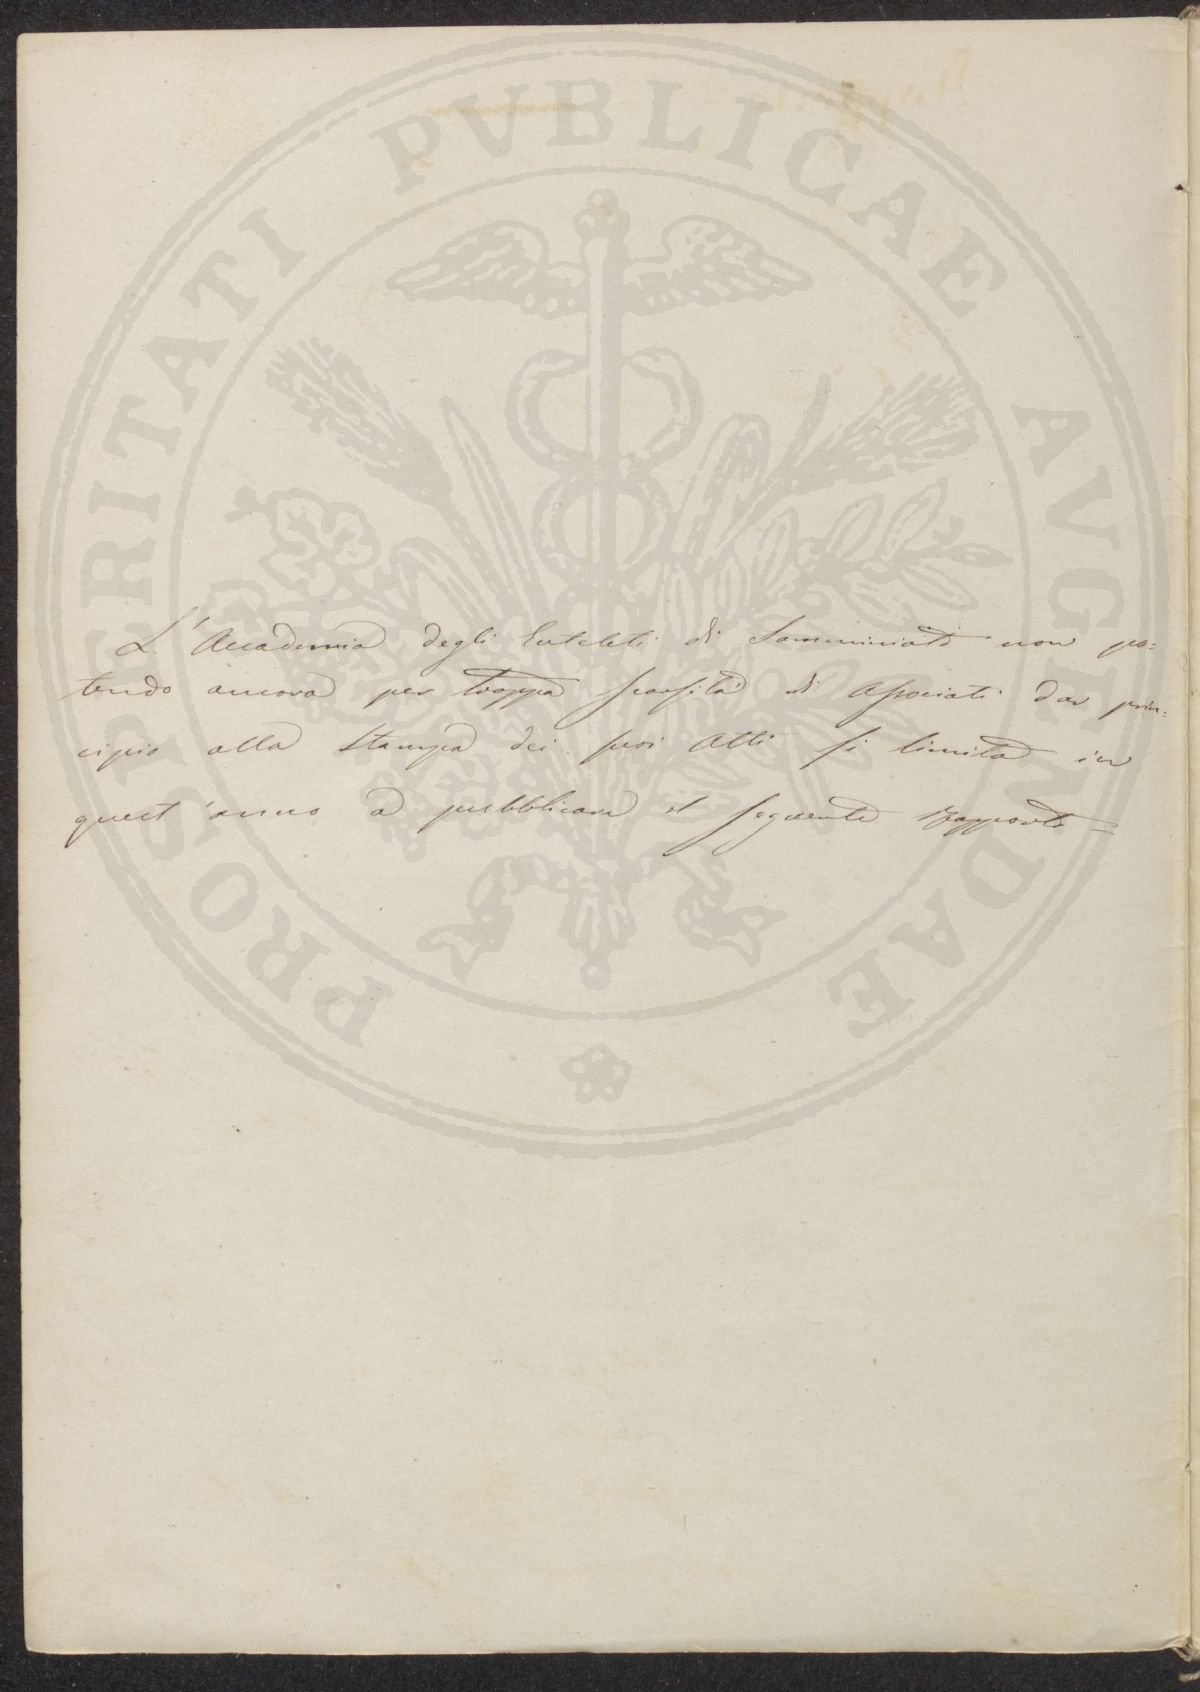 PROSPERITATI PVBLICAE AVGENDAE
L'Accademia degli Euteleti di Samminiato non po=
tendo ancora per troppa scarsità di Associati dar prin=
cipio alla stampa dei suoi Atti si limita in
quest'anno a pubblicare il seguente rapporto =